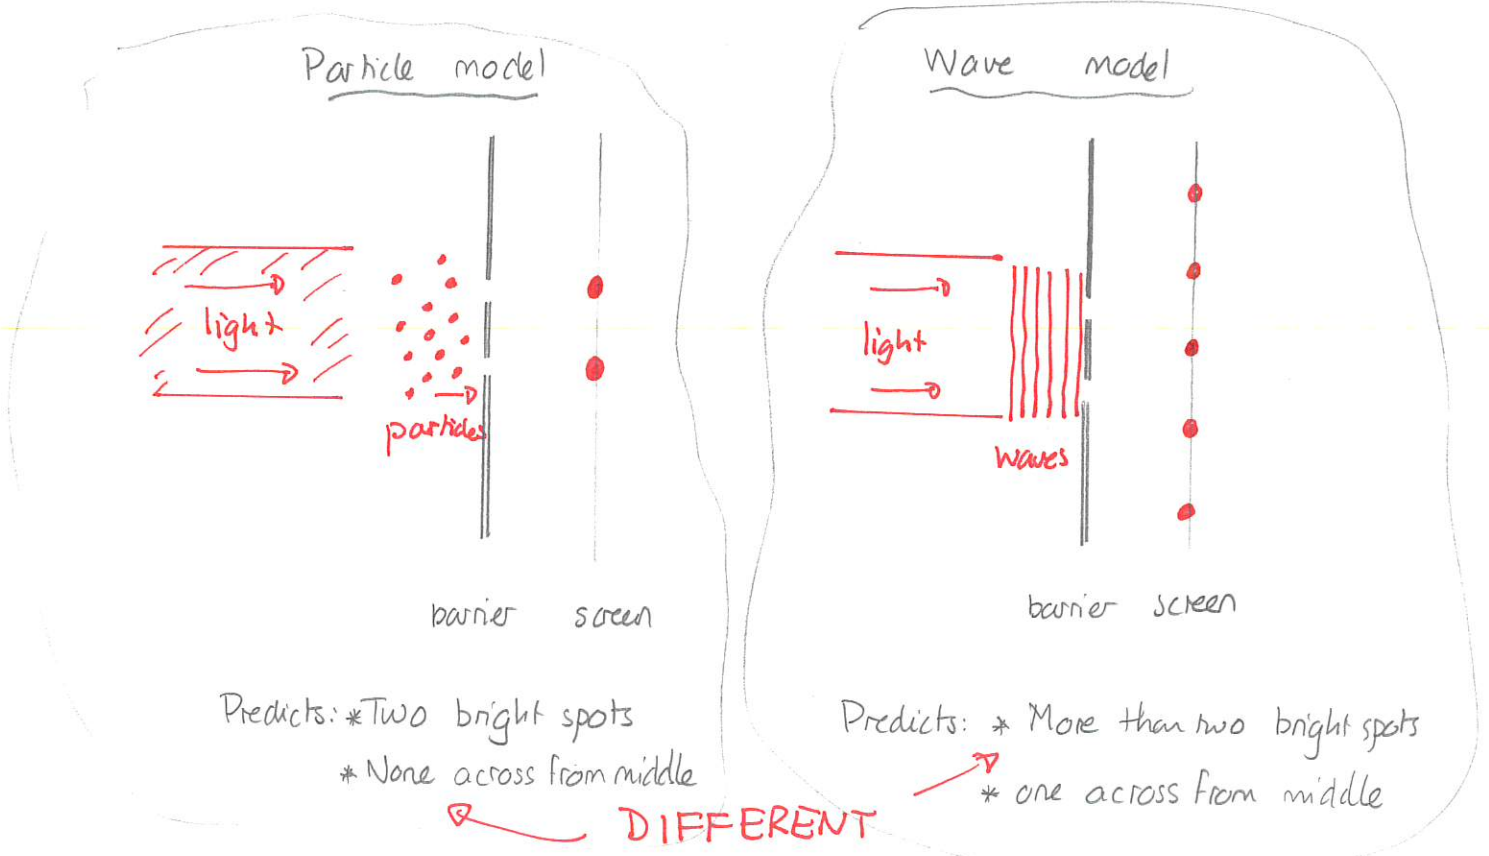 Particle model
light
particles
barrier screen
Predicts: * Two bright spots
* None across from middle
Wave model
light
waves
barrier screen
Predicts: * More than two bright spots
* one across from middle
DIFFERENT